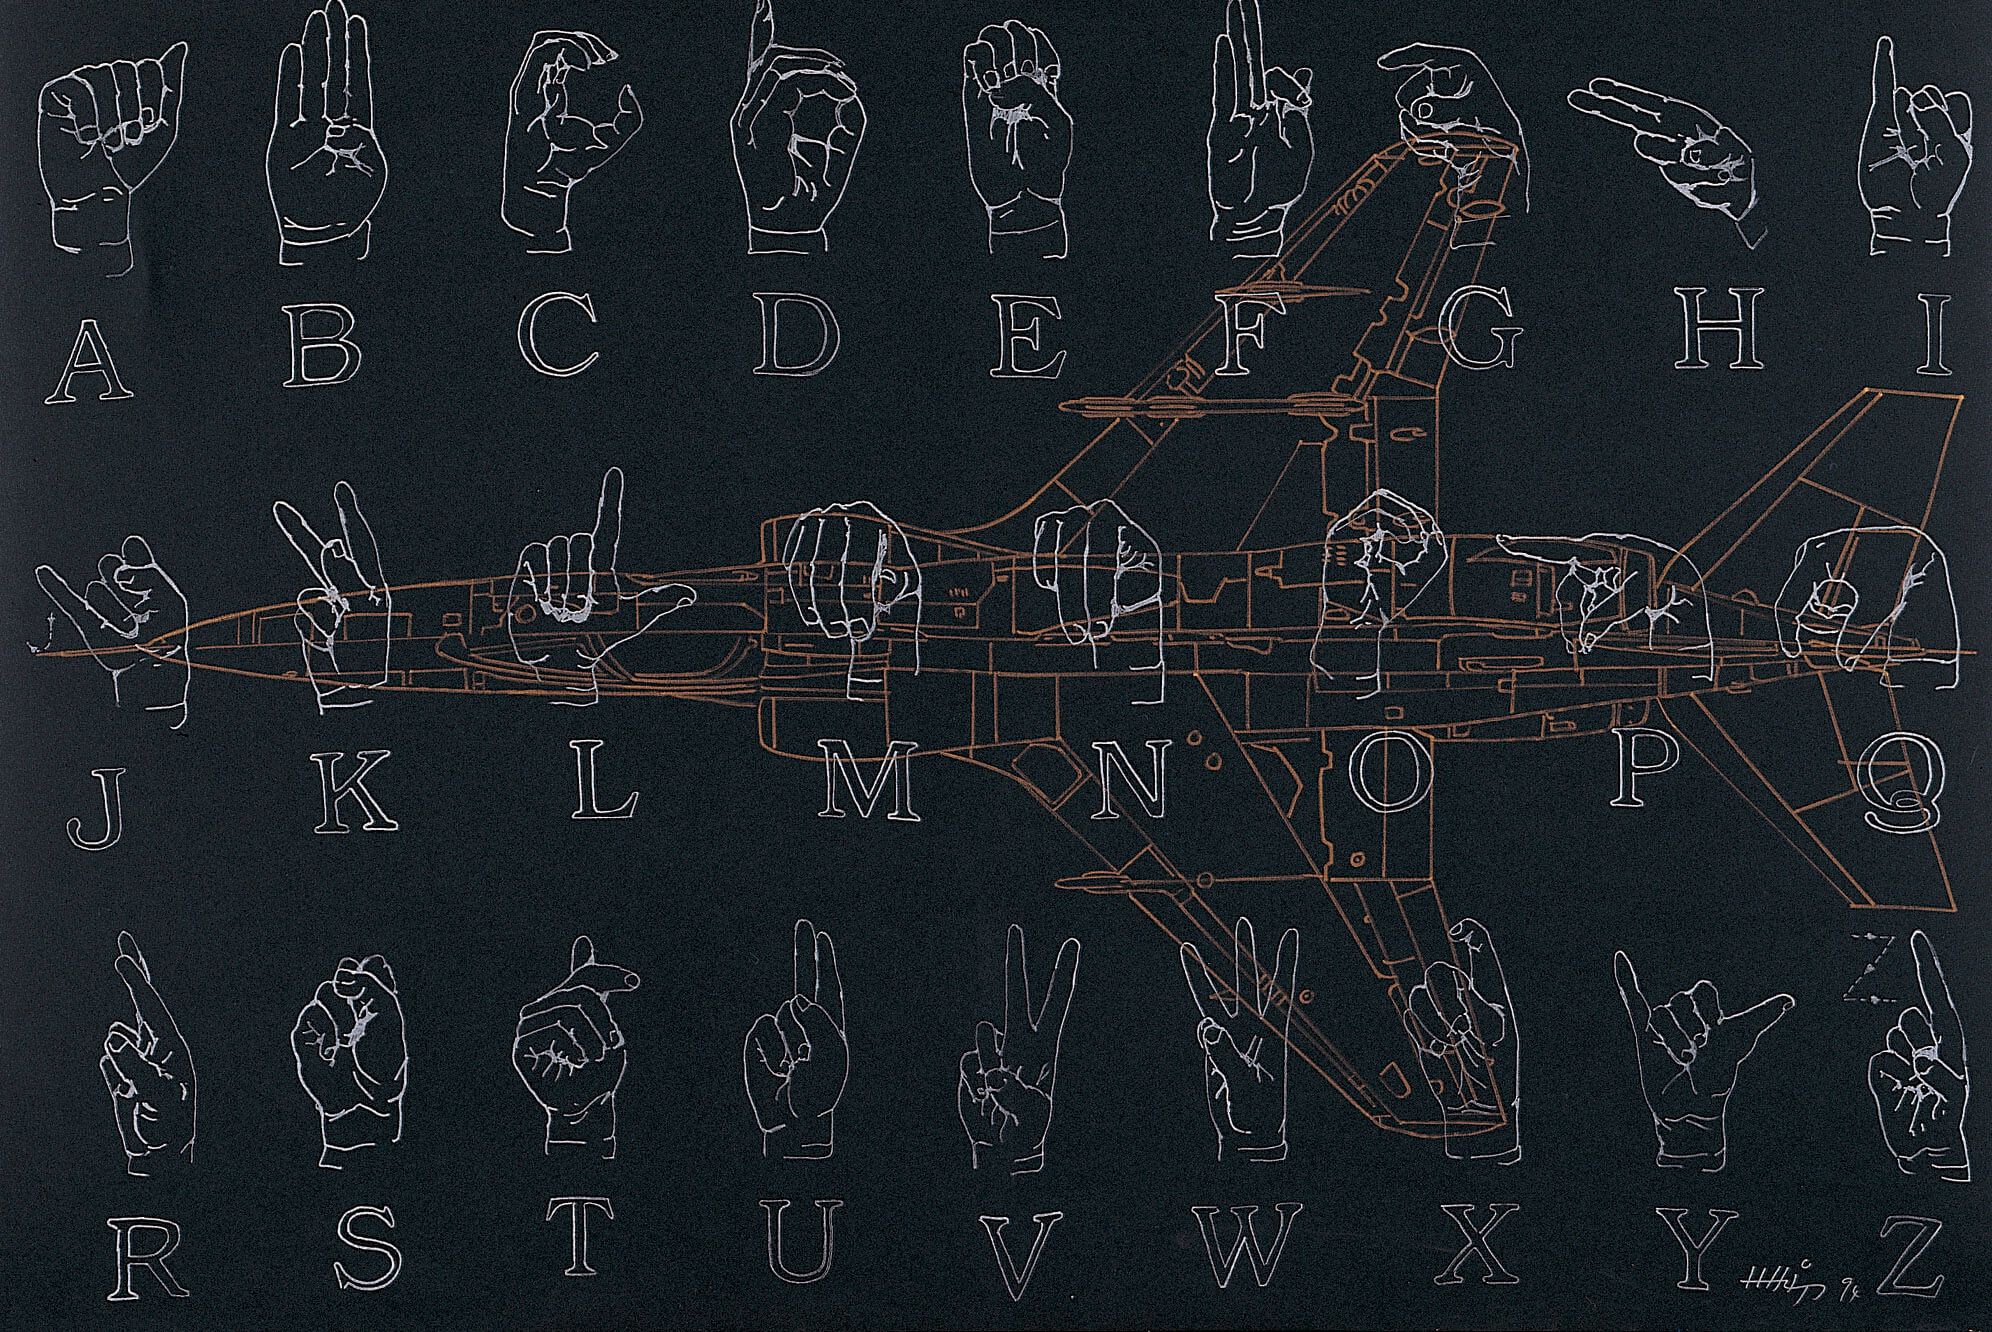 A B C D E F G H I
J
J K L M N O P Q
Z
R S T U V W X Y Z
94